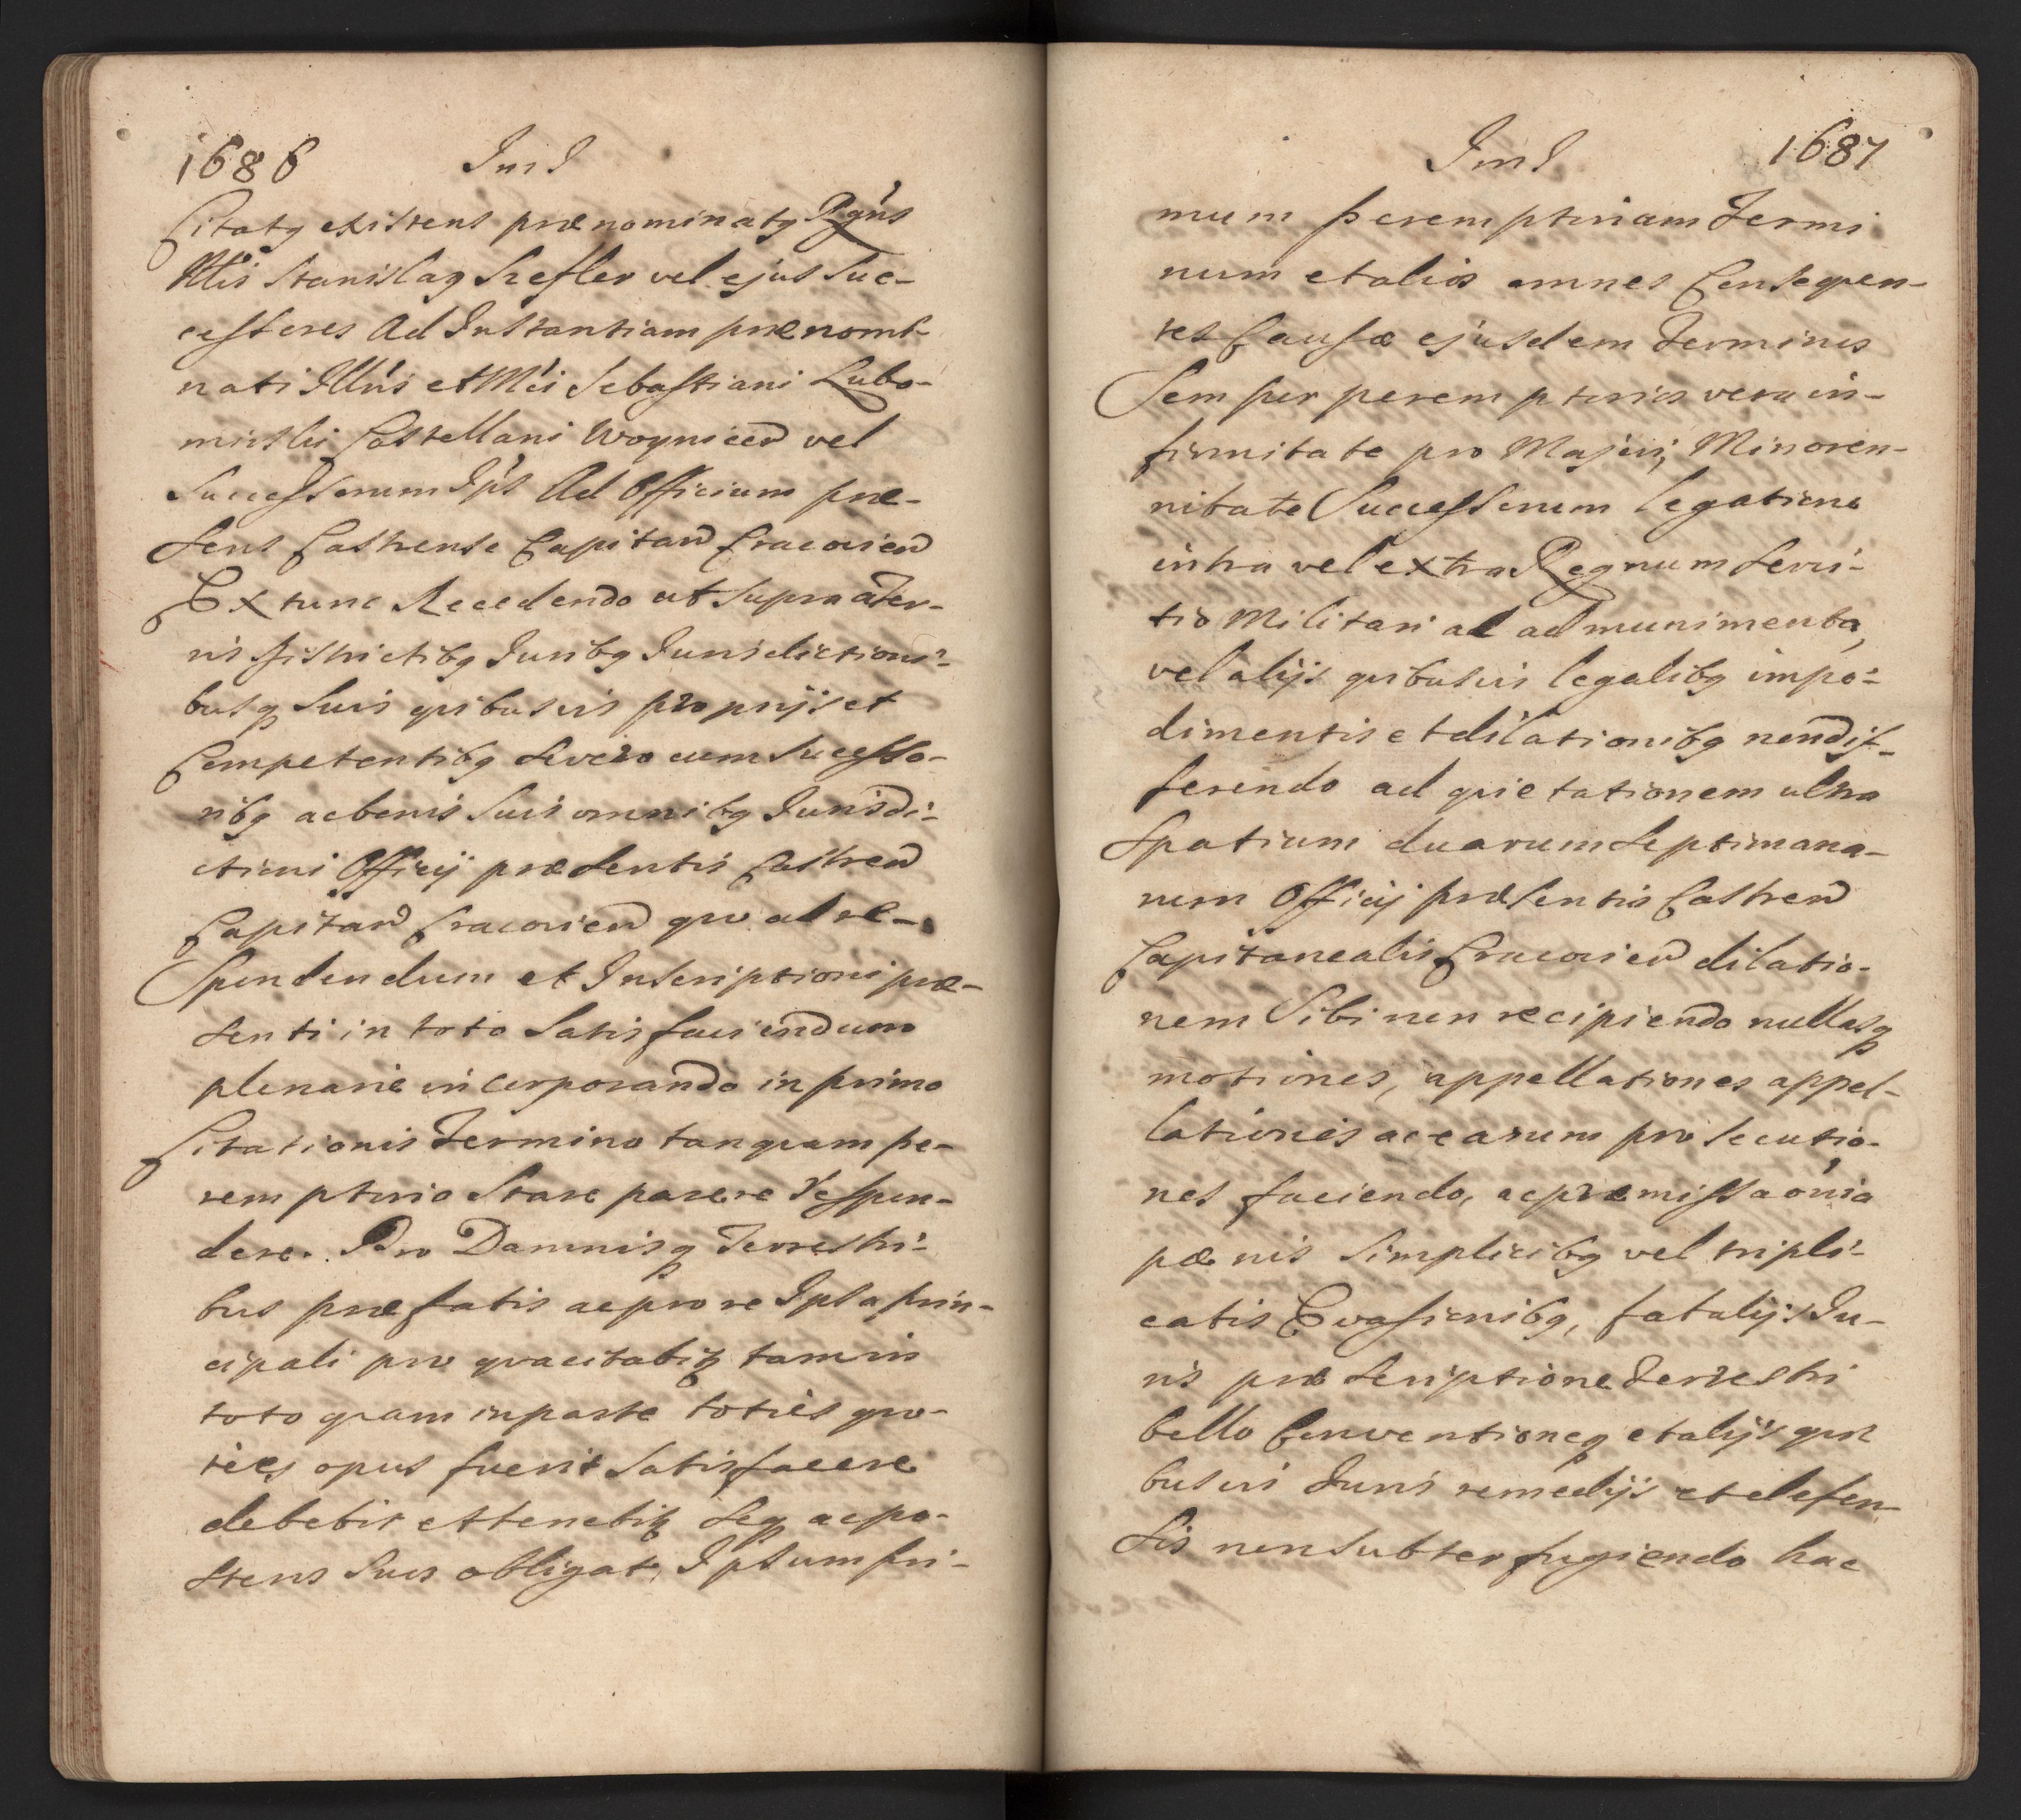 1686
Inl
Citatq existens prænominatq Rgn's
Mtis Stanislaq Szefler vel ejus Suc-
cessores Ad Instantiam prænomi-
nati Illu's et Mci Sebastiani Lubo-
mirski Castellani Woynicen vel
Successorum Ips Ad Officium præ-
sens Castrense Capitan Cracovien
Ex tunc Recedendo ut supra a Ter-
ris Districtibq Juribq Jurisdictioni-
busq Suis quibusvis proprijs et
Competentibq Se vero cum Successo-
ribq ac bonis Suis omnibq Jurisdi-
ctioni Officij præsentis Castren
Capitan Cracovien quo ad re-
spondendum et Inscriptioni præ-
senti in toto Satisfaciendum
plenarie incorporando in primo
Citationis Termino tanquam pe-
remptorio Stare parere respon-
dere. Pro Damnisq Terrestri-
bus præfatis ac pro re Ipsa prin-
cipali pro qua citabitq tam in
toto quam in parte toties quo-
ties opus fuerit Satisfacere
debebit et tenebitq Seq ac po-
steros Suos obligat, Ipsum pri-
Inl
1687
mum peremptoriam Termi
num et alios omnes Consequen-
tes Causæ ejusdem Terminos
Semper peremptorios vera in-
firmitate pro Majori, Minoren-
nitate Successorum legatione
intra vel extra Regnum Servi-
tio Militari al ad munimenta,
vel alijs quibusvis legalibq impe-
dimentis et dilationibq non dif-
ferendo ad quietationem ultra
Spatium duarum Septimana-
rum Officij præsentis Castren
Capitanealis Cracovien dilatio-
nem Sibi non recipiendo nullasq
motiones, appellationes appel-
lationes ac earum prosecutio-
nes faciendo, ac præmissa om̃ia
pænis Simplicibq vel tripli-
catis Evasionibq, fatalijs Ju-
ris præscriptione Terrestri
bello Conventioneq et alijs qui
busvis Juris remedijs et defen-
sis non subterfugiendo hac